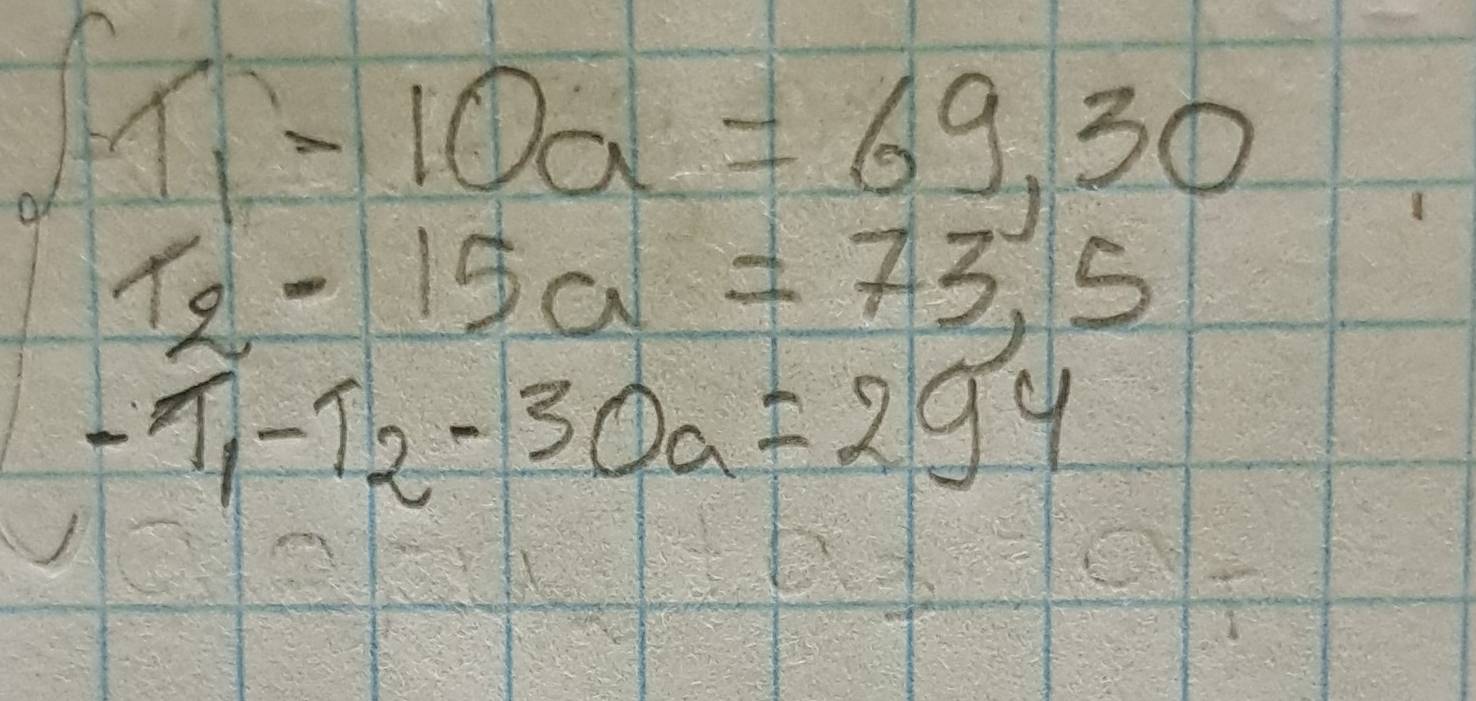 T₁ - 10a = 69,30
T₂ - 15a = 73,5
-T₁ - T₂ - 30a = 294